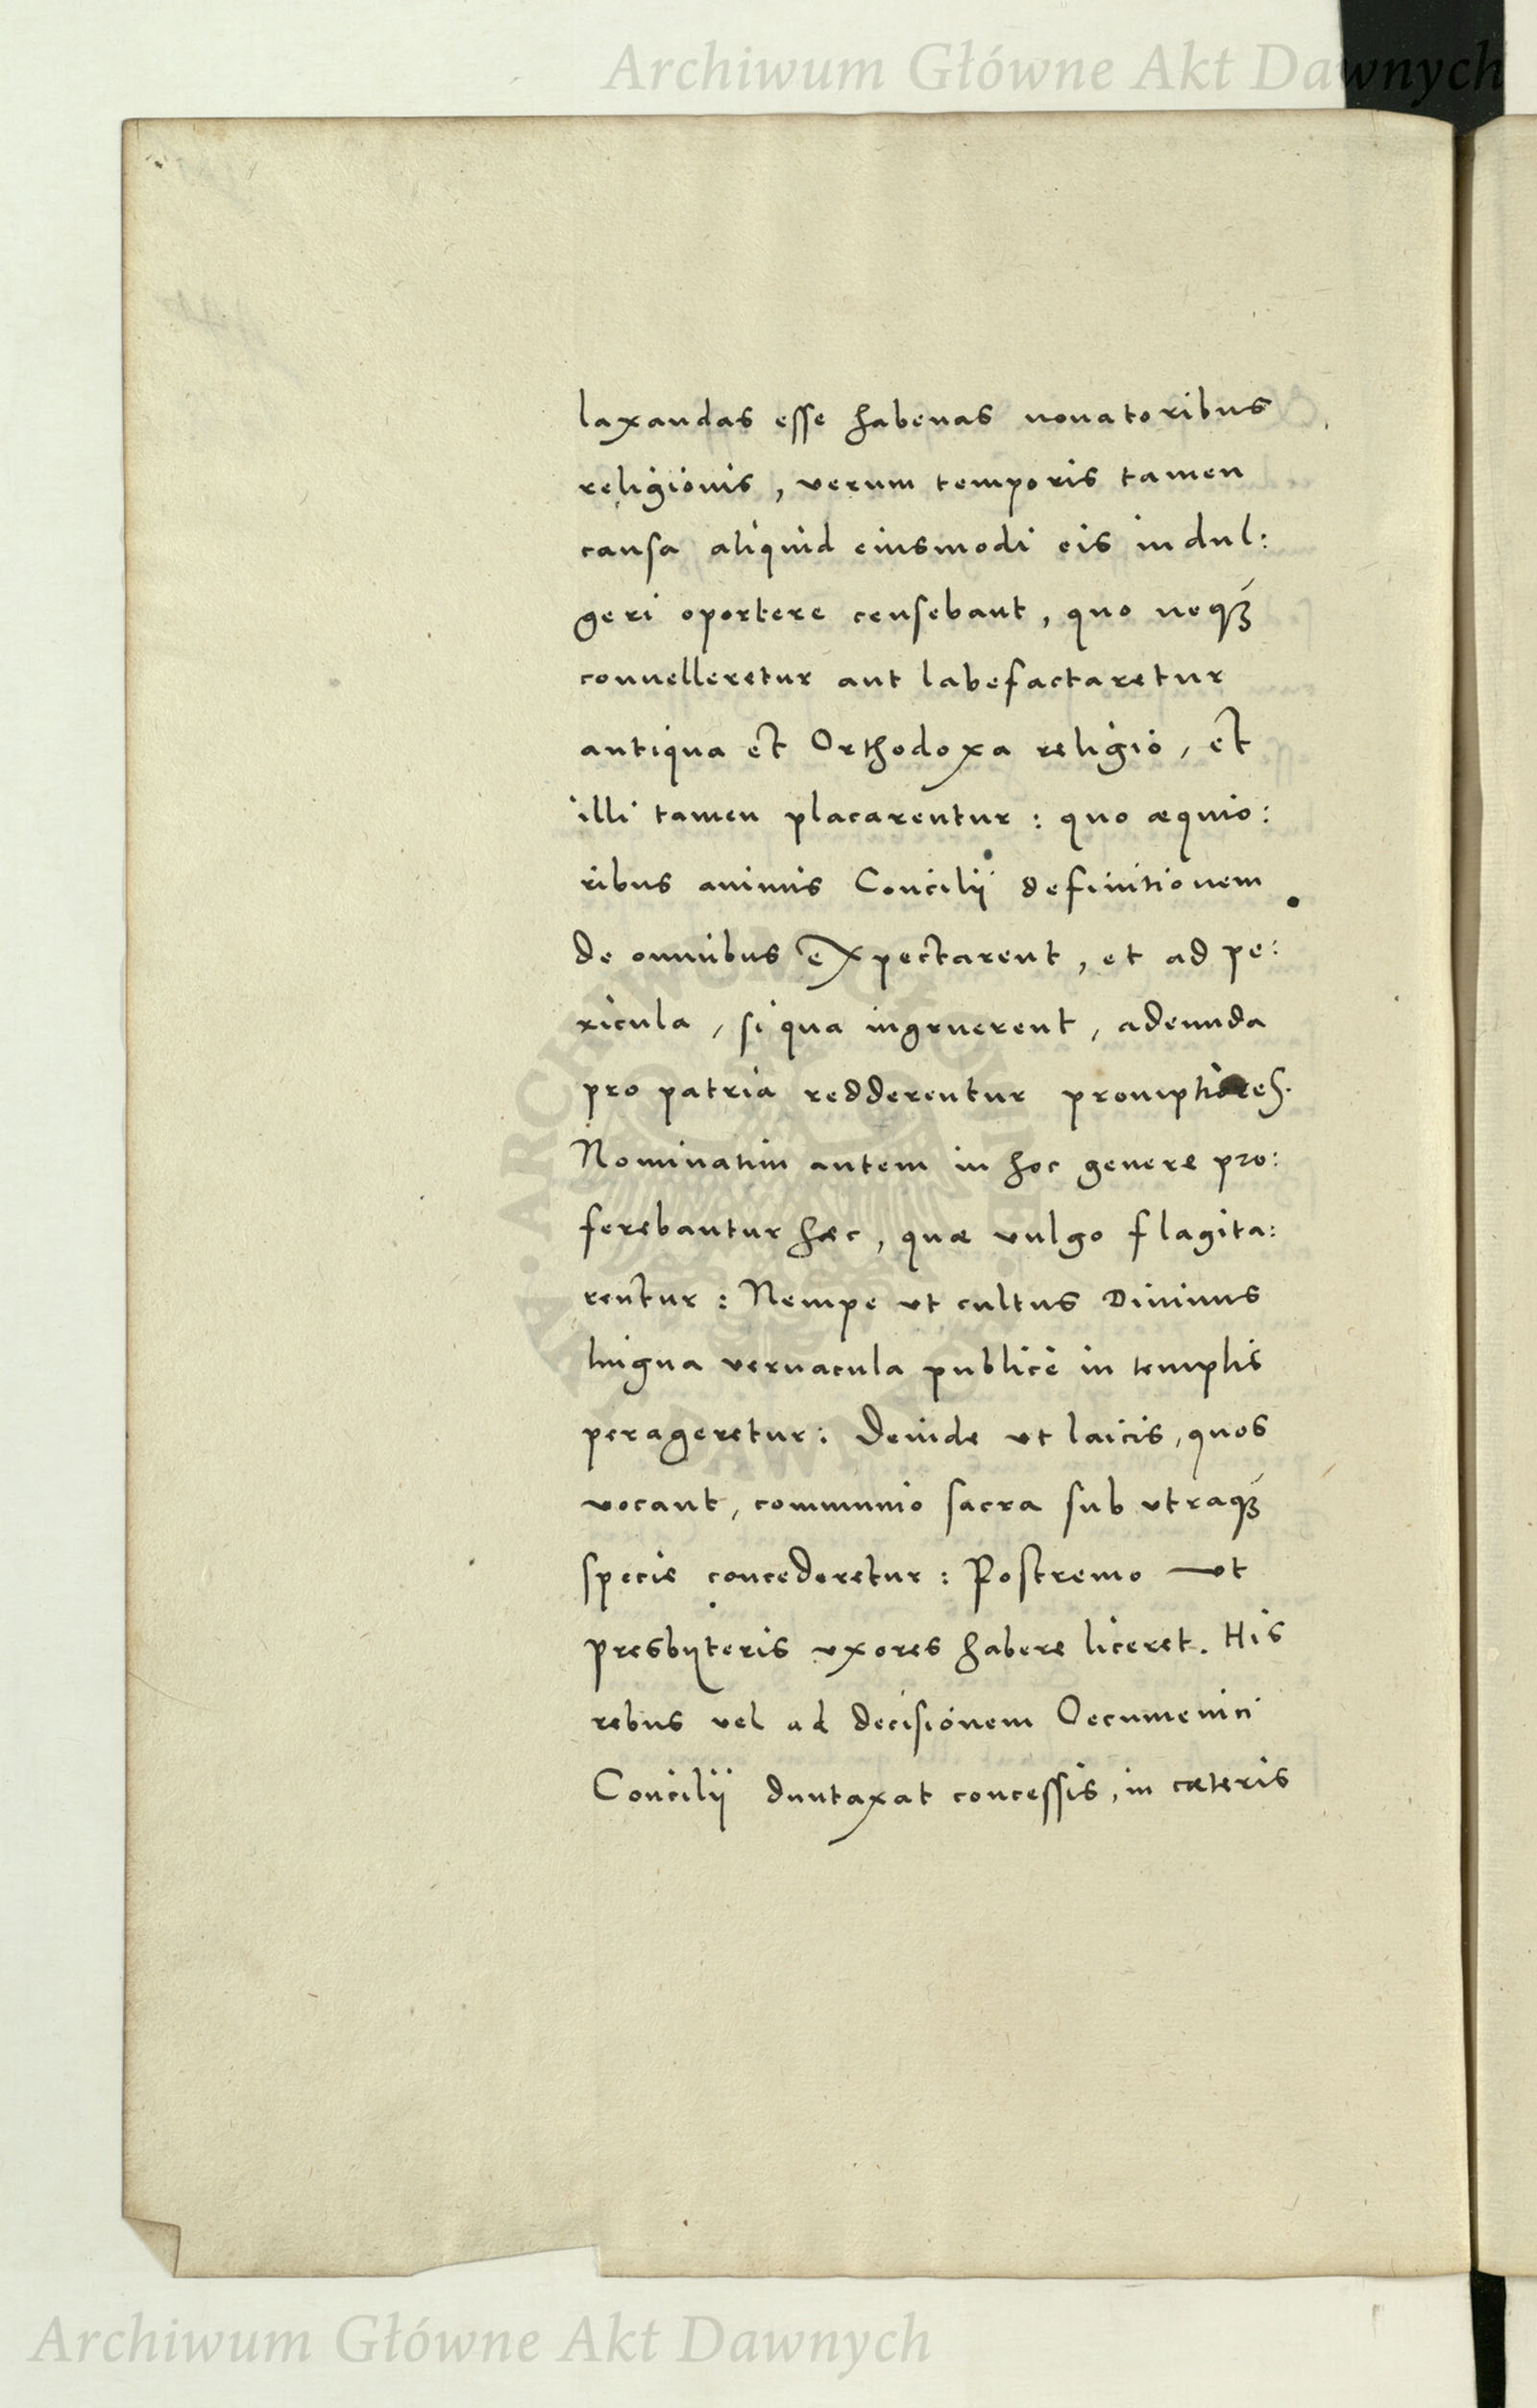 Archiwum Główne Akt Dawnych
laxandas esse habenas nouatoribus
religionis, verum temporis tamen
causa aliquid eiusmodi eis indul:
geri oportere censebant, quo neqꝫ
conuelleretur aut labefactaretur
antiqua et Orthodoxa religio, et
illi tamen placarentur: quo æquio:
ribus animis Concilij definitionem
de omnibus expectarent, et ad pe:
ricula, si qua ingruerent, adeunda
pro patria redderentur promptiores.
Nominatim autem in hoc genere pro:
ferebantur hæc, quæ vulgo flagita:
rentur: Nempe vt cultus Diuinus
lingua vernacula publicè in templis
perageretur: Deinde vt laicis, quos
vocant, communio sacra sub vtraqꝫ
specie concederetur: Postremo vt
presbyteris vxores habere liceret. His
rebus vel ad decisionem Oecumenici
Concilij duntaxat concessis, in cæteris
Archiwum Główne Akt Dawnych